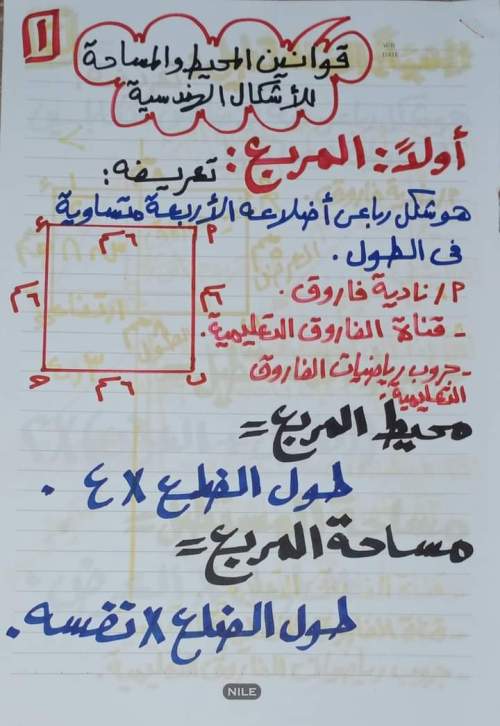 ١
قوانين المحيط والمساحة
للأشكال الهندسية
أولاً: المربع:
تعريفه:
هو شكل رباعى أضلاعه الأربعة متساوية
فى الطول.
٦سم
٦سم
٦سم
٦سم
أ
ب
ج
م/ نادية فاروق.
- قناة الفاروق التعليمية.
- جروب رياضيات الفاروق
التعليمية.
محيط المربع =
طول الضلع × ٤.
مساحة المربع =
طول الضلع × نفسه.
NILE